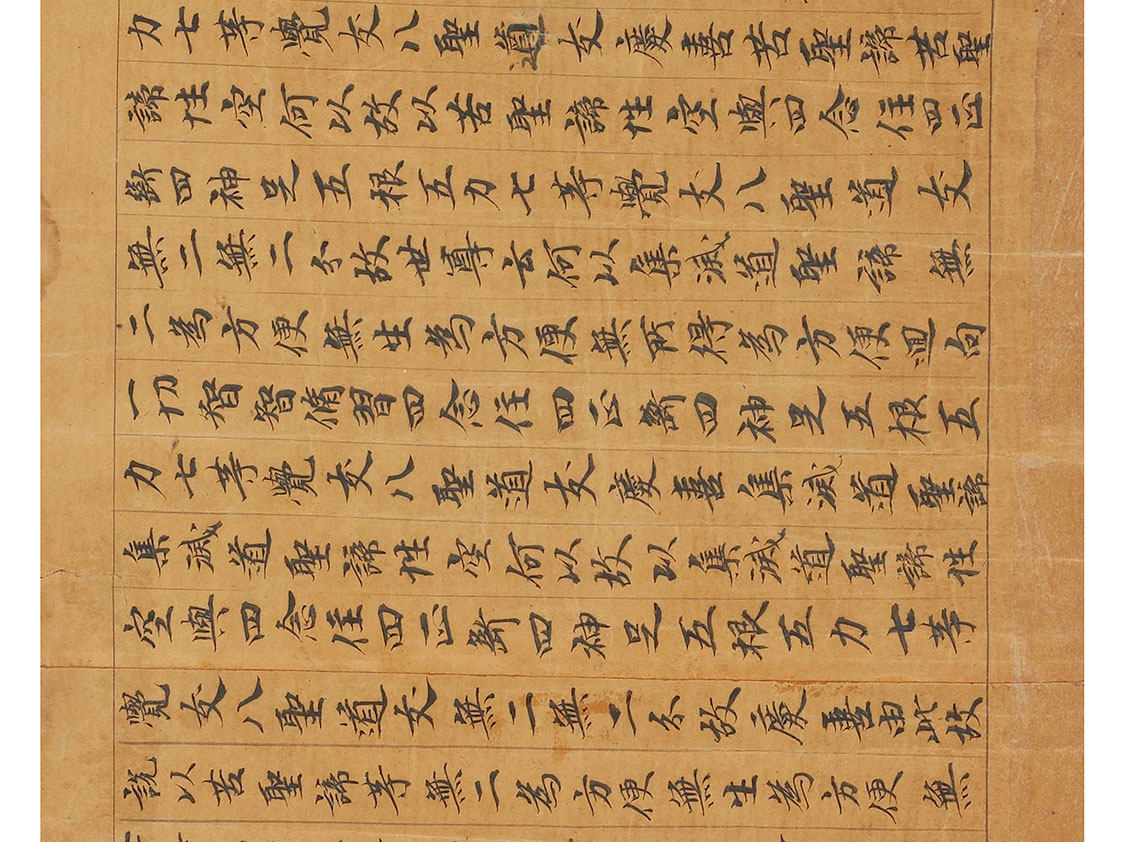 力七等覺支八聖道支慶喜苦聖諦苦聖
諦性空何以故以苦聖諦性空與四念住四正
斷四神足五根五力七等覺支八聖道支
無二無二分故世尊云何以集滅道聖諦無
二為方便無生為方便無所得為方便迴向
一切智智脩習四念住四正斷四神足五根五
力七等覺支八聖道支慶喜集滅道聖諦
集滅道聖諦性空何以故以集滅道聖諦性
空與四念住四正斷四神足五根五力七等
覺支八聖道支無二無二分故慶喜由此故
說以苦聖諦等無二為方便無生為方便無